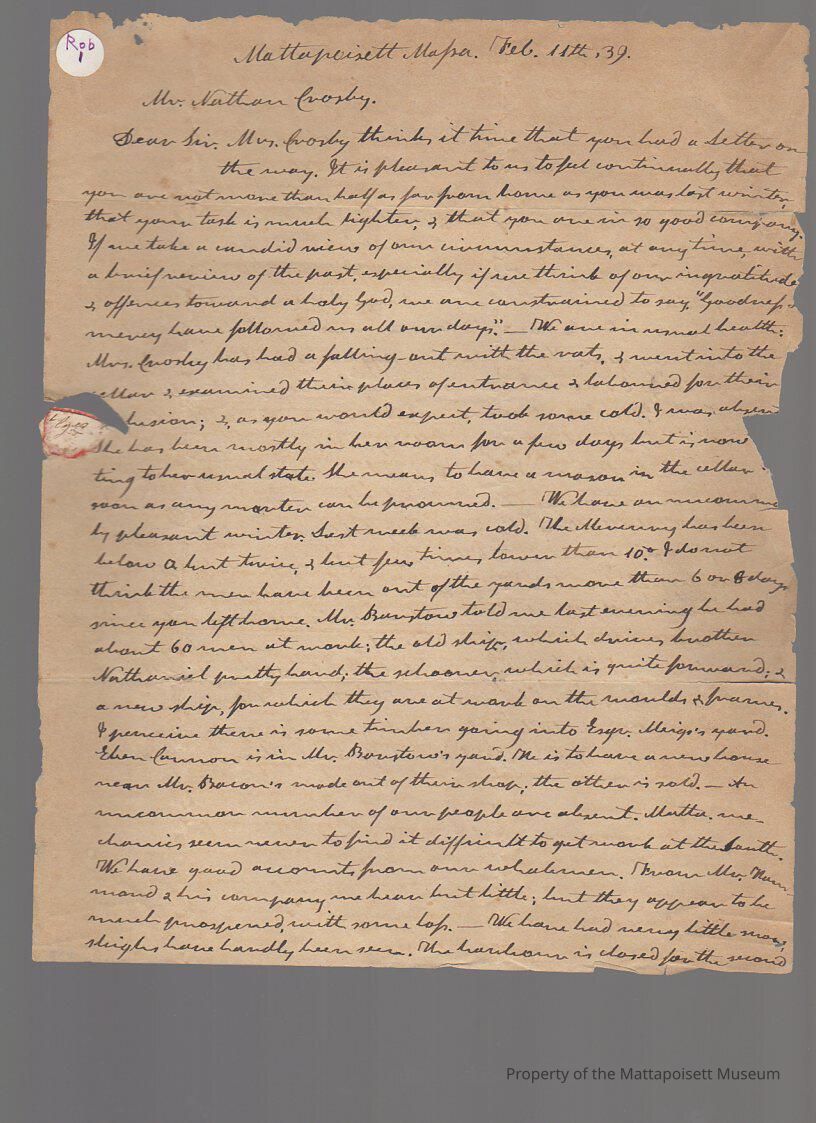 Rob
1
Mattapoisett Massa. Feb. 11th, 39.
Mr. Nathan Crosby.
Dear Sir. Mrs. Crosby thinks it time that you had a Letter on
the way. It is pleasant to us to feel continually that
you are not more than half as far from home as you was last winter
that your task is much lighter, & that you are in so good company.
If we take a candid view of our circumstances, at any time, with
a brief review of the past, especially if we think of our ingratitude
& offences toward a holy God, we are constrained to say, "Goodness &
mercy have followed us all our days." — We are in usual health:
Mrs. Crosby has had a falling-out with the rats, & went into the
cellar & examined their places of entrance & laboured for their
clusion; &, as you would expect, took some cold. I was absen
She has been mostly in her room for a few days but is now
ting to her usual state. She means to have a mason in the cellar
soon as any mortar can be procured. — We have an uncommon
ly pleasant winter. Last week was cold. The Mercury has been
below 0 but twice, & but few times lower than 10.° I do not
think the men have been out of the yards more than 6 or 8 days
since you left home. Mr. Barstow told me last evening he had
about 60 men at work; the old ship, which drives brother
Nathaniel pretty hard; the schooner, which is quite forward; &
a new ship, for which they are at work on the moulds & frames.
I perceive there is some timber going into Esqr. Meigs's yard.
Eben Cannon is in Mr. Barstow's yard. He is to have a new house
near Mr. Bacon's made out of their shop; the other is sold. — An
uncommon number of our people are absent. Matta. me-
chanics seem never to find it difficult to get work at the South.
We have good accounts from our whalemen. From Mr. Ham-
mond & his company we hear but little; but they appear to be
much prospered, with some loss. — We have had very little snow,
sleighs have hardly been seen. The harbour is closed for the second
Property of the Mattapoisett Museum